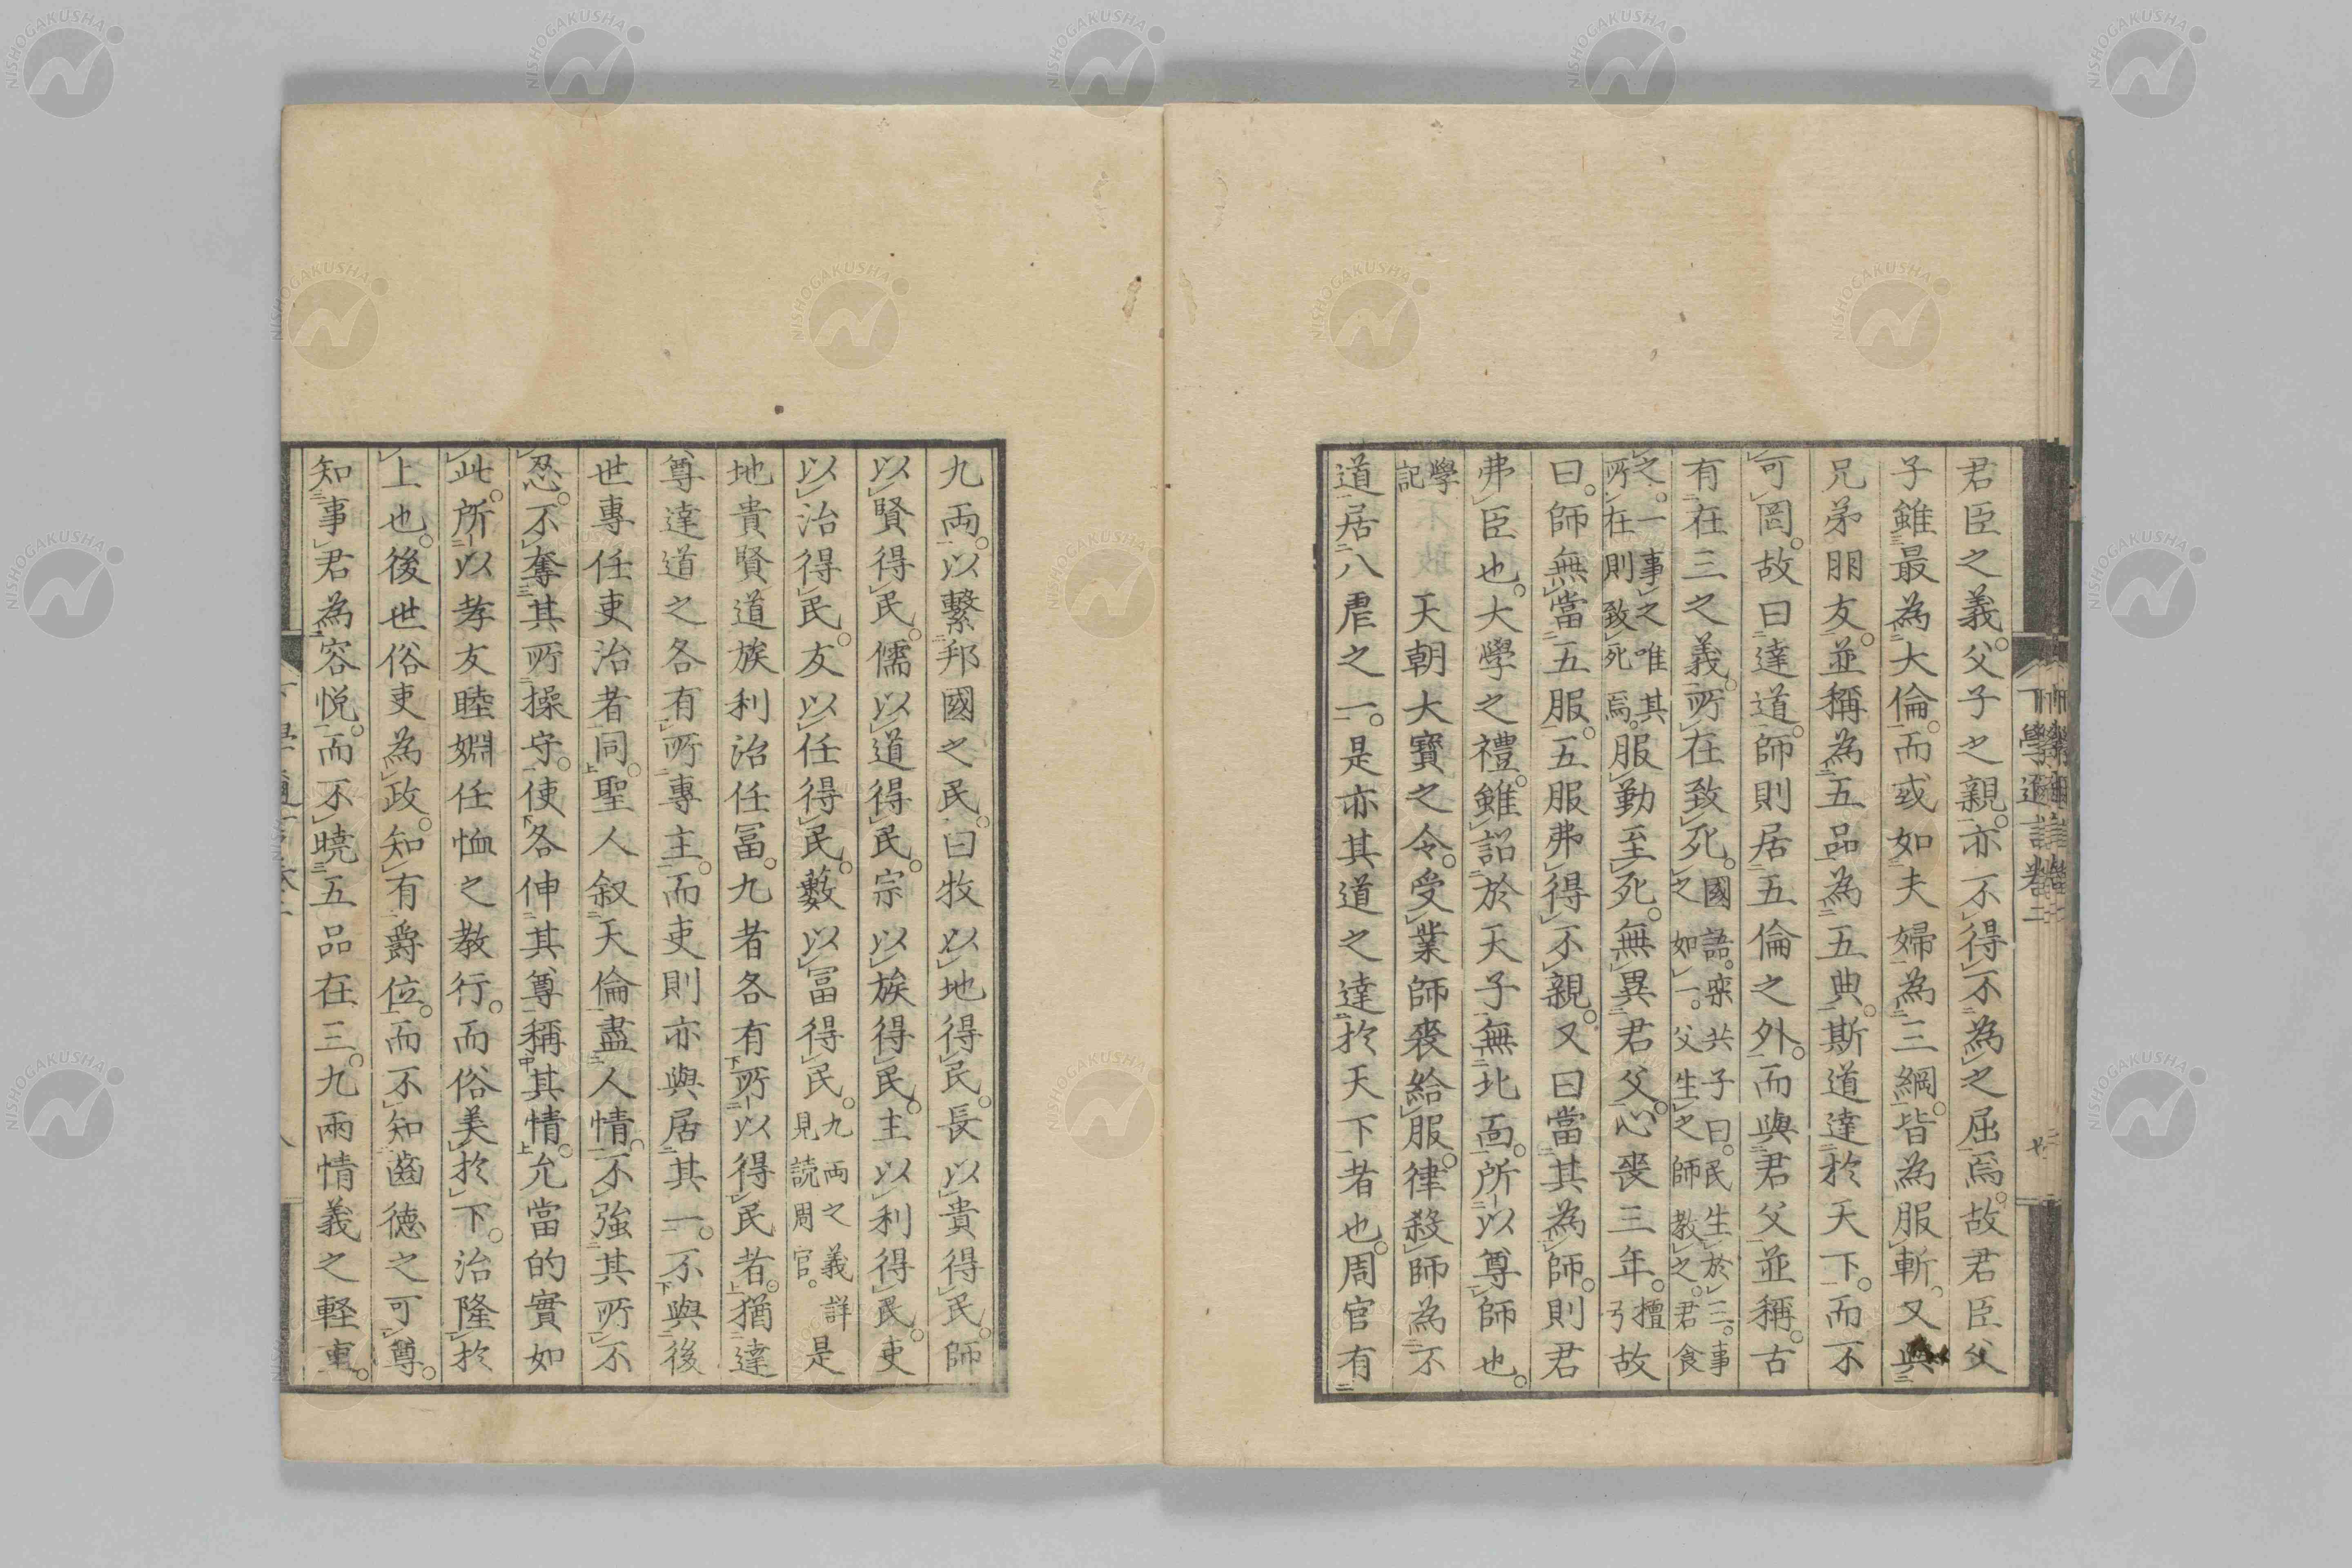 君臣之義。父子之親。亦不得不為之屈焉。故君臣父
子雖最為大倫。而或如夫婦為三綱。皆為服斬。又與
兄弟朋友。並稱為五品為五典。斯道達於天下。而不
可罔。故曰達道。師則居五倫之外。而與君父並稱。古
有在三之義。所在致死。國語。欒共子曰。民生於三。事之如一。父生之師教之。君食
之。一事之唯其所在則致死焉。服勤至死。無異君父。心喪三年。檀弓故
曰。師無當五服。五服弗得不親。又曰當其為師。則君
弗臣也。大學之禮。雖詔於天子無北面。所以尊師也。
學記　天朝大寶之令。受業師喪給服。律殺師為不
道居八虐之一。是亦其道之達於天下者也。周官有
下學邇言卷二
九両。以繫邦國之民。曰牧以地得民。長以貴得民。師
以賢得民。儒以道得民。宗以族得民。主以利得民。吏
以治得民。友以任得民。藪以冨得民。九両之義詳見読周官。是
地貴賢道族利治任冨。九者各有所以得民者。猶達
尊達道之各有所專主。而吏則亦與居其一。不與後
世專任吏治者同。聖人叙天倫盡人情。不強其所不
忍。不奪其所操守。使各伸其尊稱其情。允當的實如
此。所以孝友睦婣任恤之教行。而俗美於下。治隆於
上也。後世俗吏為政。知有爵位。而不知齒徳之可尊。
知事君為容悦。而不曉五品在三。九兩情義之軽重。